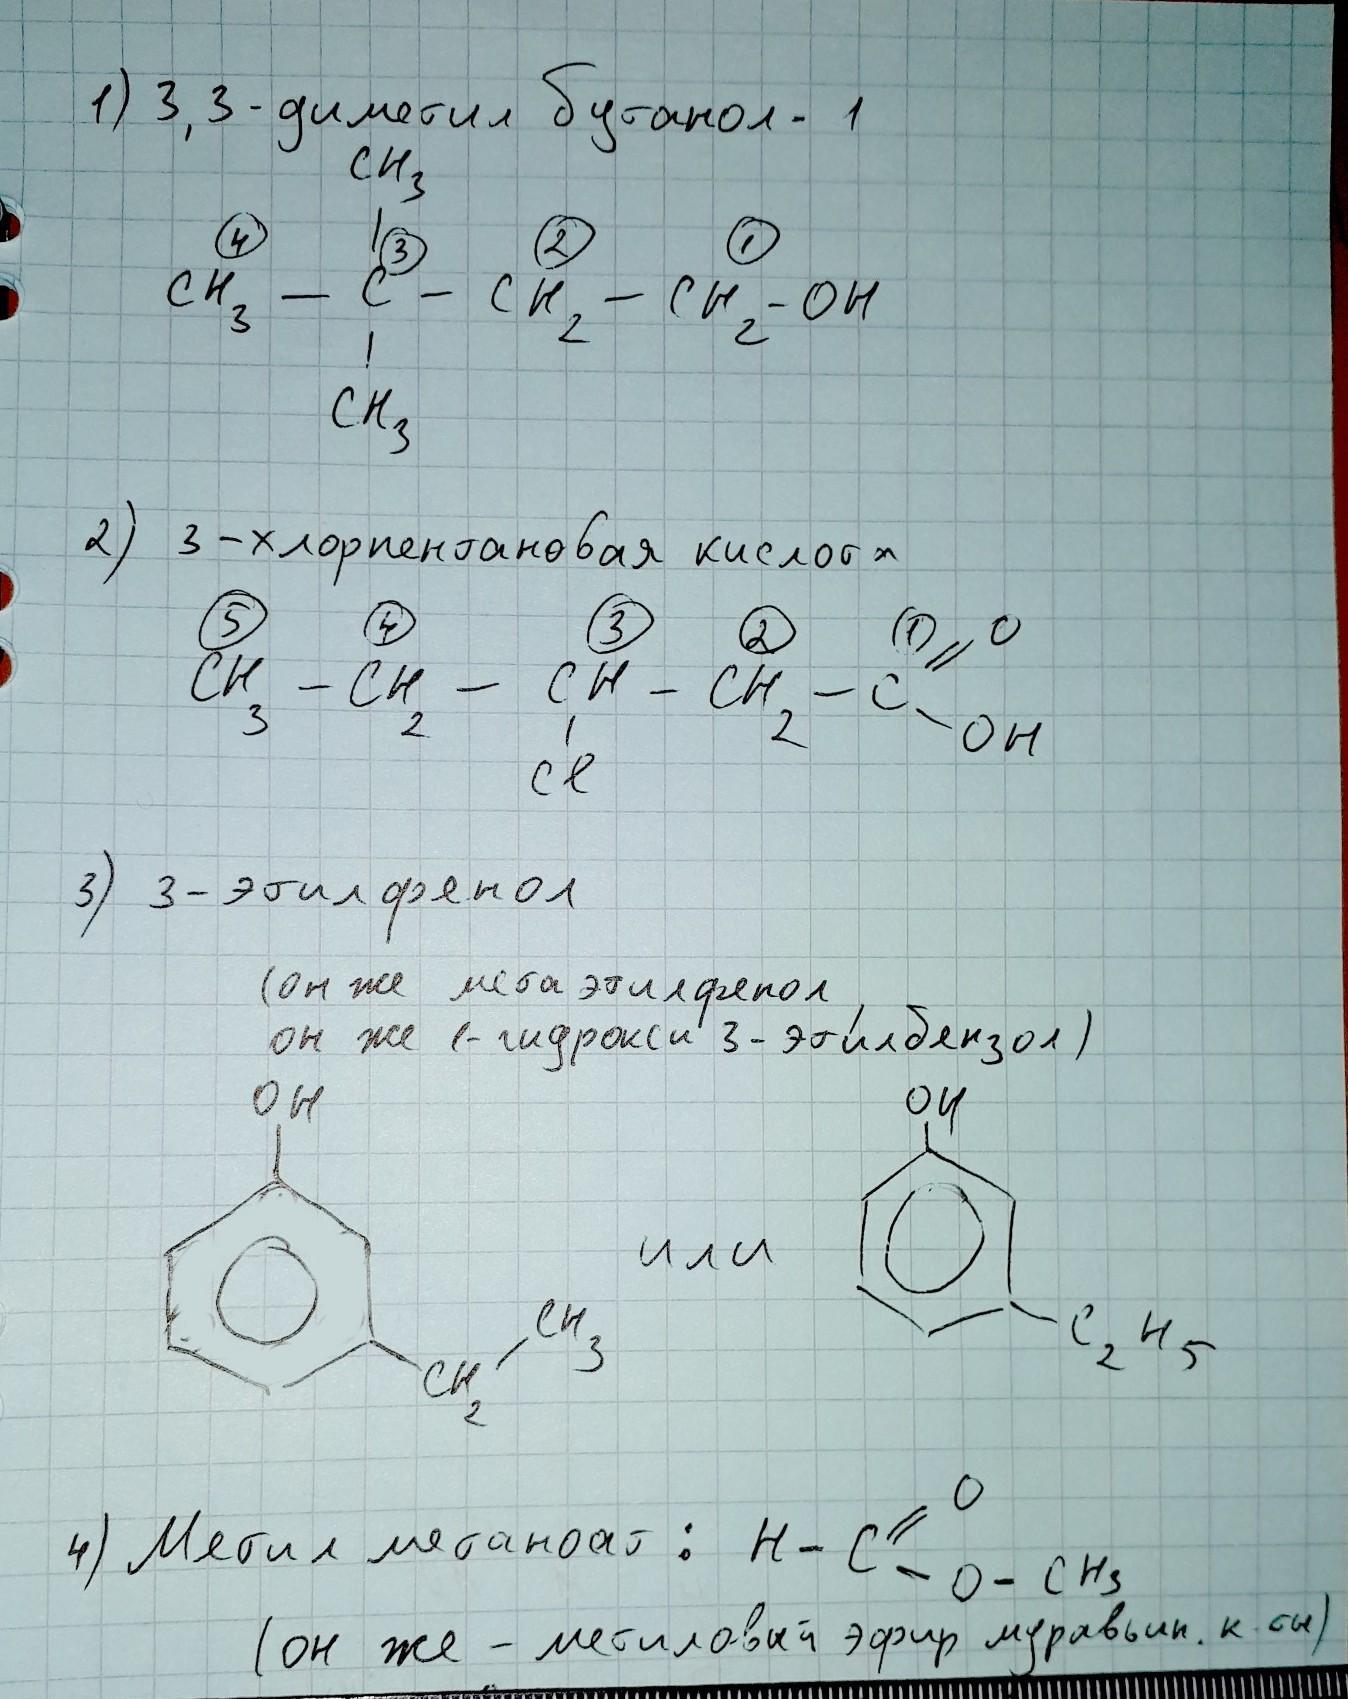 1) 3,3-диметил бутанол-1
CH3
④ ③ ② ①
CH3 — C — CH2 — CH2 - OH
CH3
2) 3-хлорпентановая кислота
⑤ ④ ③ ② ① O
CH3 — CH2 — CH — CH2 — C
OH
Cl
3) 3-этилфенол
(он же мета этилфенол,
он же 1-гидрокси 3-этилбензол)
OH OH
или
CH3
C2H5
CH2
O
4) Метил метаноат: H - C
O - CH3
(он же - метиловый эфир муравьин. к-ты)